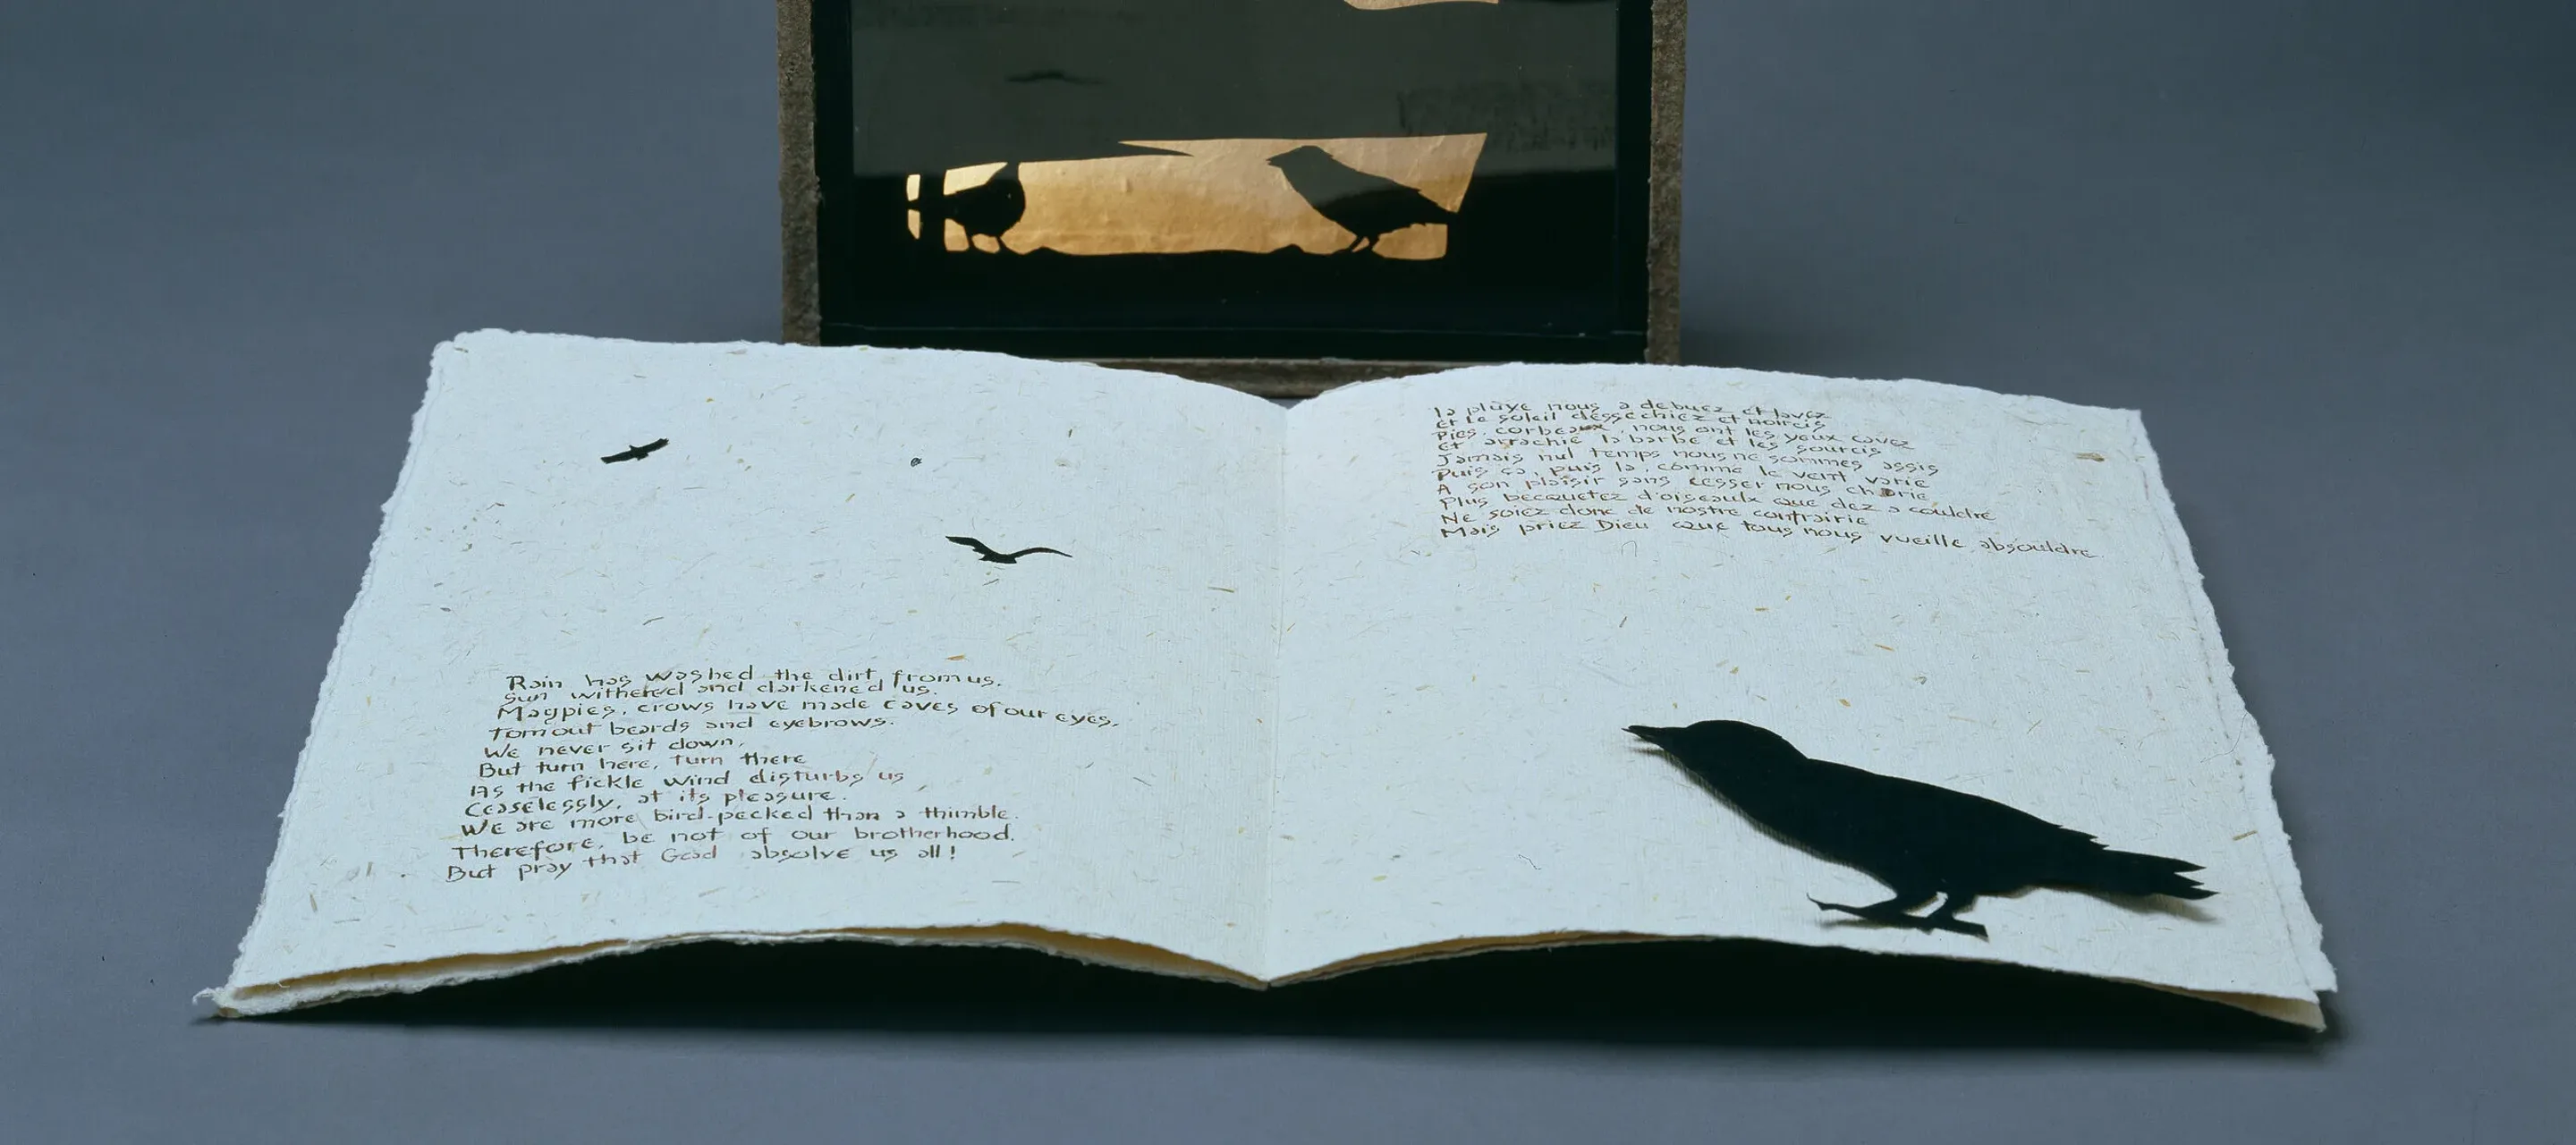 Rain has washed the dirt from us,
Sun withered and darkened us.
Magpies, crows have made caves of our eyes,
Torn out beards and eyebrows.
We never sit down,
But turn here, turn there
As the fickle wind disturbs us
Ceaselessly, at its pleasure.
We are more bird-pecked than a thimble.
Therefore, be not of our brotherhood.
But pray that God absolve us all!
la pluye nous a debuez et lavez
Et le soleil dessechiez et noircis
Pies, corbeaux, nous ont les yeux cavez
Et arrachie la barbe et les sourcis
Jamais nul temps nous ne sommes assis
Puis ça, puis la, comme le vent varie
A son plaisir sans cesser nous charie
Plus becquetez d'oiseaulx que dez a couldre
Ne soiez donc de nostre confrairie
Mais priez Dieu que tous nous vueille absouldre